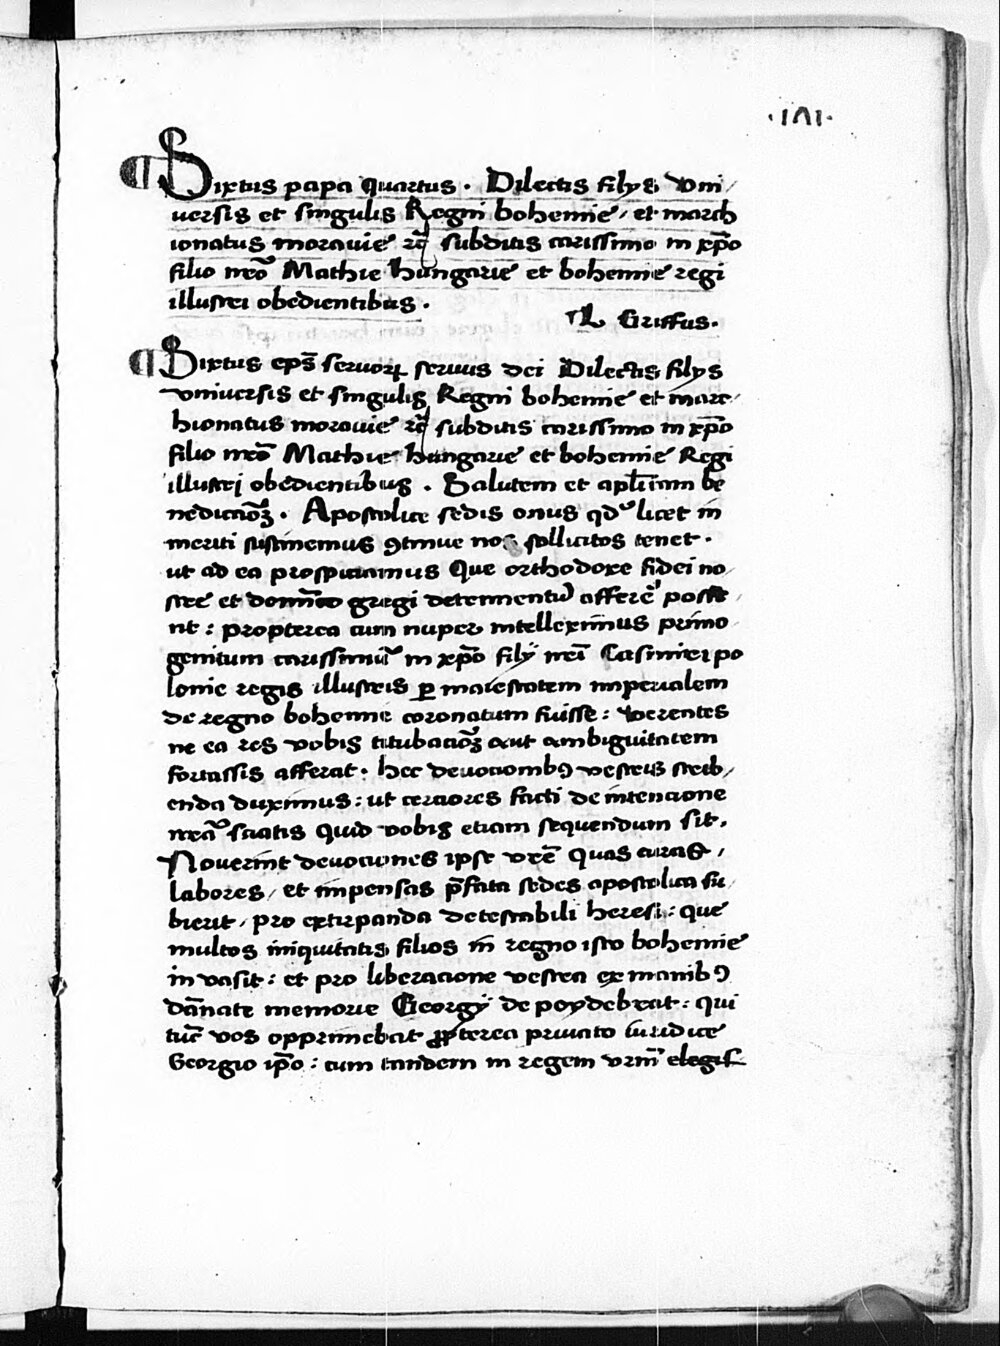 ·171·
¶ Sixtus papa quartus . Dilectis filys vni/
uersis et singulis Regni bohemie / et march
ionatus morauie rcꝫ subditis carissimo in xp̄o
filio nr̄o Mathie hungarie et bohemie regi
illustri obedientibus .
L Griffus .
¶ Sixtus ep̄s seruoꝝ seruus dei Dilectis filys
vniuersis et singulis Regni bohemie et marc/
hionatus morauie rcꝫ subditis carissimo in xp̄o
filio nr̄o Mathie hungarie et bohemie Regi
illustri obedientibus . Salutem et aplicam be
nedicc̄ōꝫ . Apostolice sedis onus qd licet in
meriti sustinemus ꝯtinue nos sollicitos tenet .
ut ad ea prospiciamus Que orthodoxe fidei no/
stre et dominico gregi detrimentū afferre posse/
nt : propterea cum nuper intellexerimus primo
genitum carissimū in xp̄o filij nr̄i Casimiri po
lonie regis illustris ꝑ maiestatem imperialem
de regno bohemie coronatum fuisse : verentes
ne ea res vobis titubac̄ōꝫ aut ambiguitatem
fortassis afferat . hec deuotionibꝰ vestris scrib/
enda duximus : ut cerciores facti de intencione
nr̄a sciatis quid vobis etiam sequendum sit .
Nouerint deuociones ipse vr̄e Quas curas /
labores / et impensas p̄fata sedes apostolica su/
bierit / pro extirpanda detestabili heresi : que
multos iniquitatis filios in regno isto bohemie
in vasit : et pro liberacione vestra ex manibꝰ
dānate memorie Georgij de poydebrat : qui
tūc vos opprimebat ꝓpterea priuato iuridice
Georgio ip̄o : cum tandem in regem vrm̄ elegis